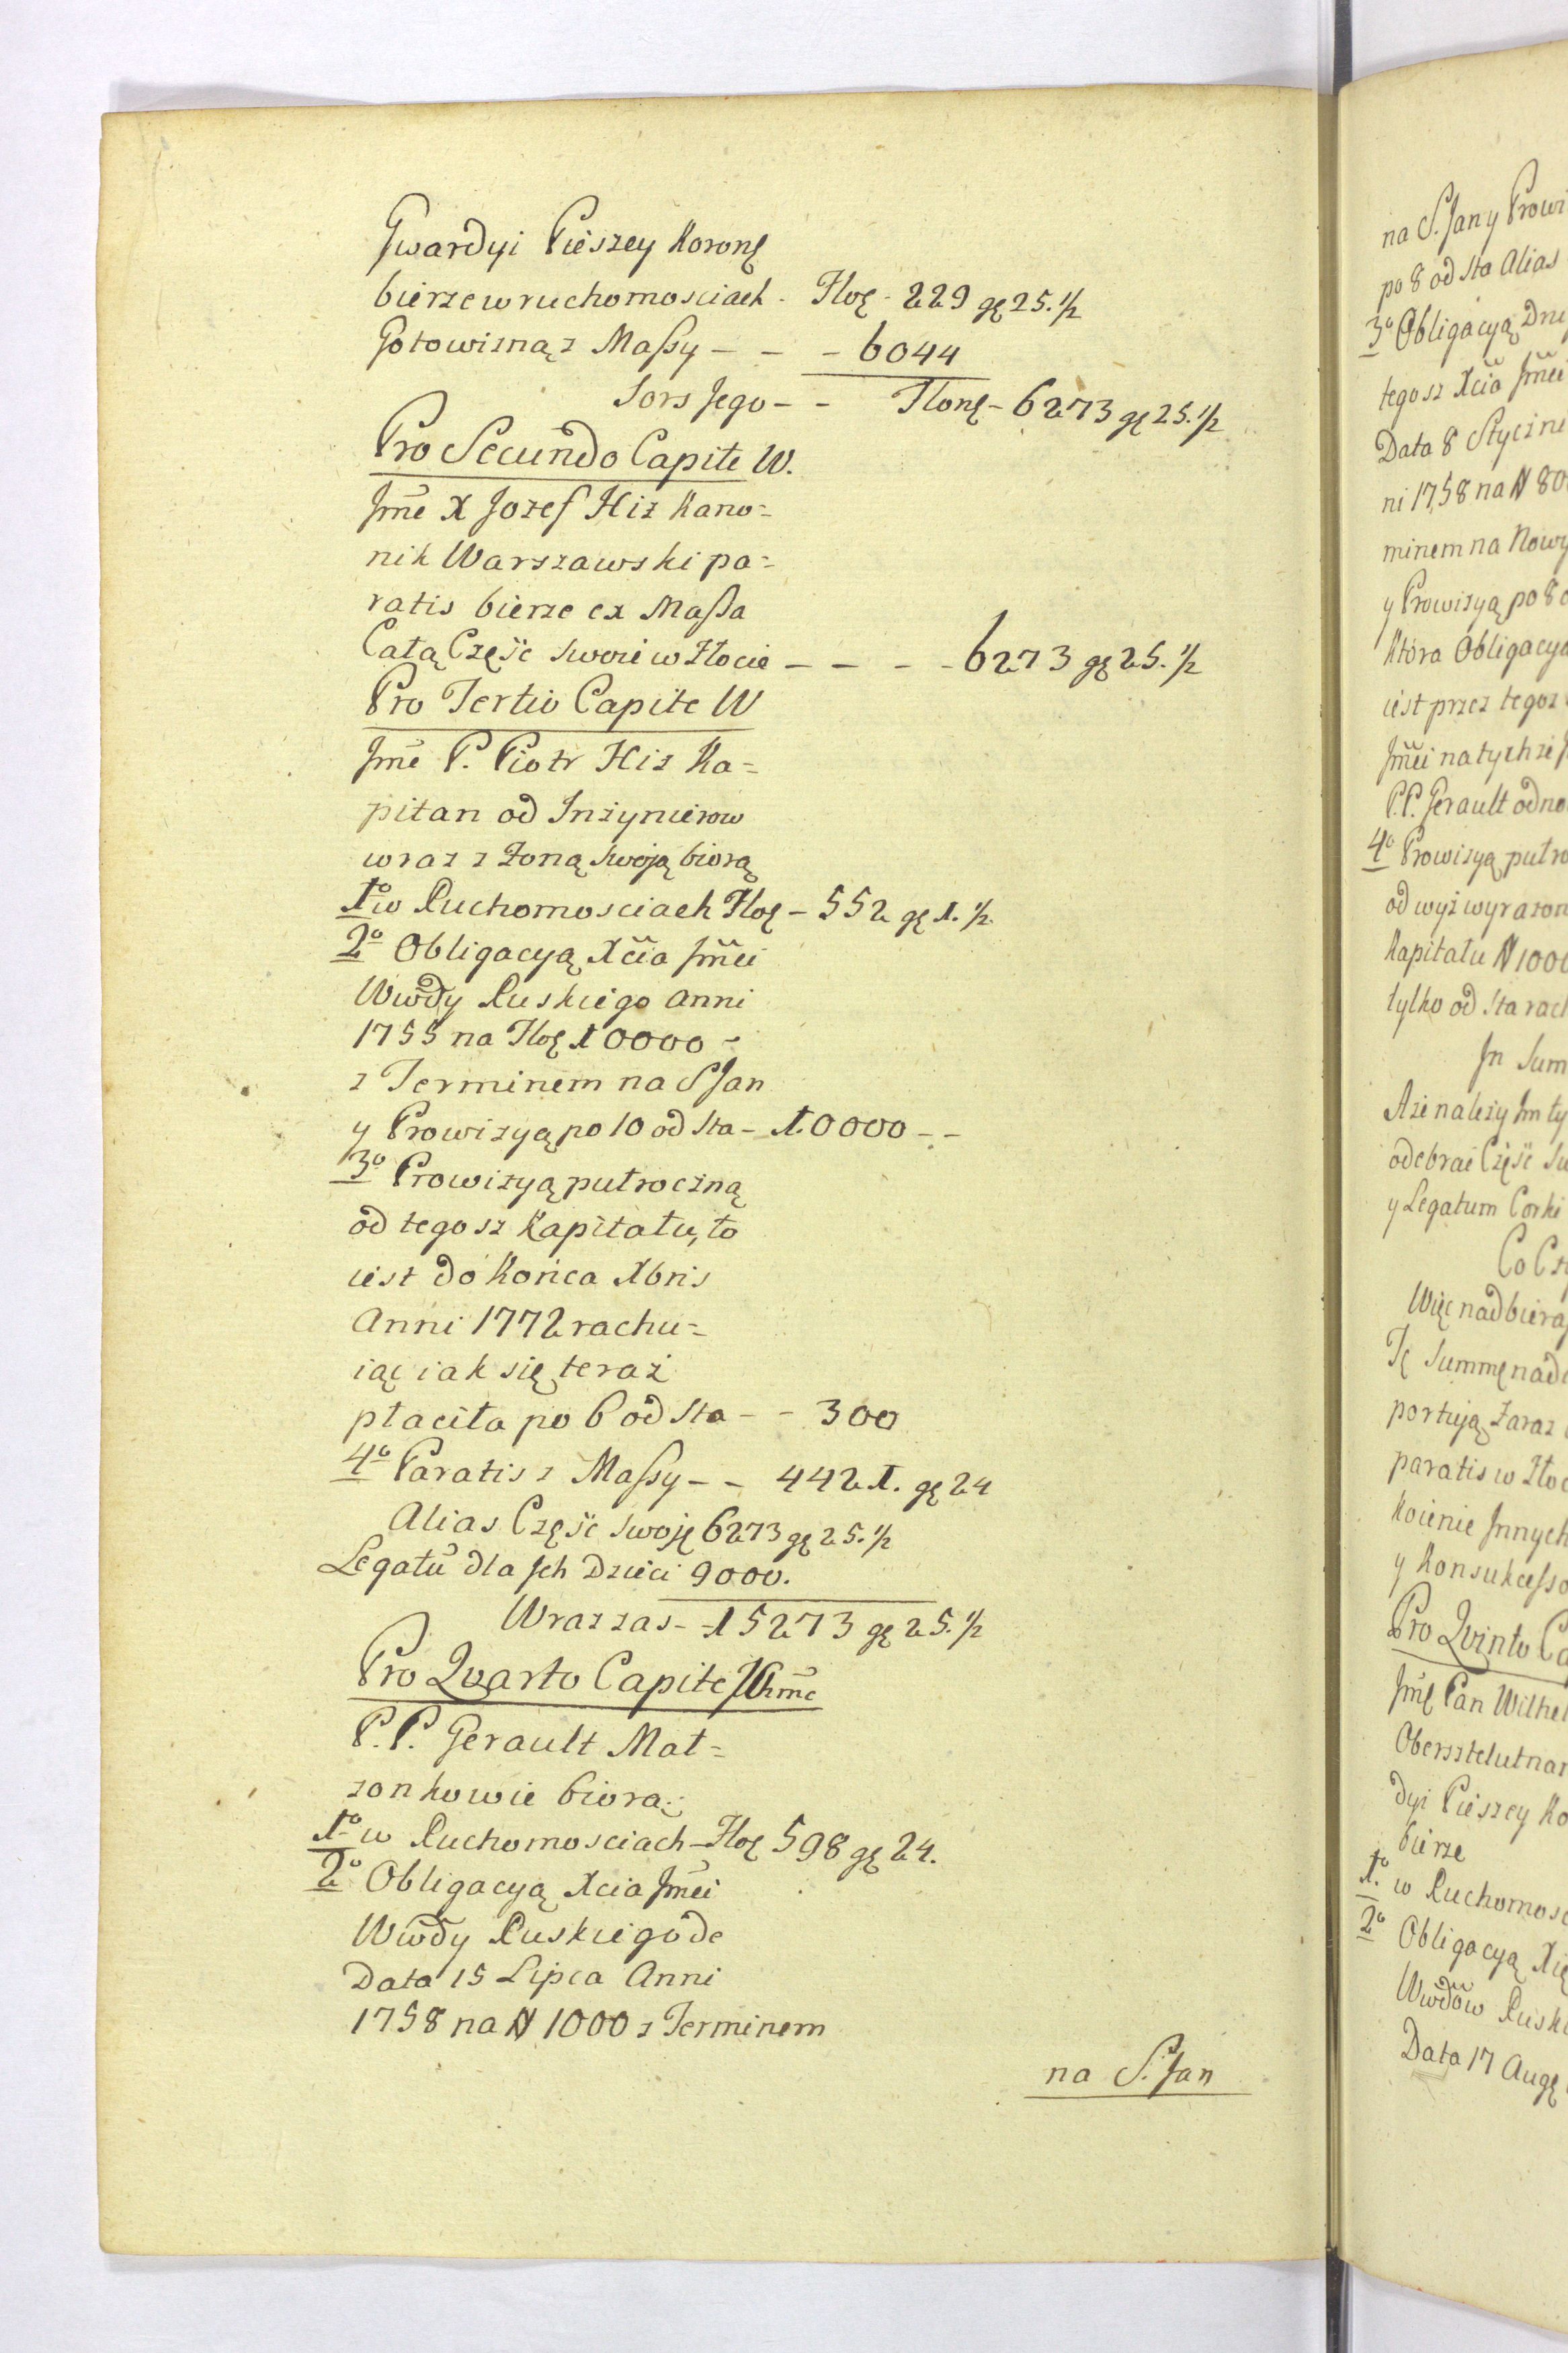 Gwardyi Pieszey Koronę
bierze w ruchomosciach - Złoę - 229 gę 25. 1/2
Gotowizną z Massy - - - 6044
Sors Jego - - Złonę - 6273 gę 25. 1/2
Pro Secundo Capite W.
Jmć X Jozef Hiż Kano=
nik Warszawski pa=
ratis bierze ex Massa
Całą Część swoię w Złocie - - - - 6273 gę 25. 1/2
Pro Tertio Capite W
Jmć P. Piotr Hiż Ka=
pitan od Inżynierow
wraz z Żoną swoją biorą
1o w Ruchomosciach Złoę - 552 gę 1. 1/2.
2o Obligacyą Xcia Jmci
Wwdy Ruskiego Anni
1755 na Złoę 10000 -
z Terminem na S Jan
y Prowizyą po 10 od Sta - 10000 - -
3o Prowizyą pułroczną
od tegosz Kapitału, to
iest do Końca Xbris
Anni 1772 rachu=
iąc iak się teraż
płaciła po 6 od Sta - - 300
4o Paratis z Massy - - 4421. gę 24
Alias Część swoję 6273 gę 25. 1/2
Legatū dla Jch Dzieci 9000.
Wraz zas - - 15273 gę 25. 1/2
Pro Qvarto Capite WJmć
P.P. Gerault Mał=
zonkowie biorą:
1o w Ruchomosciach - Złoę 598 gę 24.
2o Obligacyą Xcia Jmci
Wwdy Ruskiego de
Data 15 Lipca Anni
1758 na # 1000 z Terminem
na S. Jan
na S. Jan y Prowi
po 8 od sta Alias
3o Obligacyą Dru
tegosz Xcia Jmci
Data 8 Styczni
ni 1758 na # 80
minem na Nowy
y Prowizyą po 8 o
Która Obligacya
iest przez tegoz
Jmci na tychże J
P.P. Gerault odno
4o Prowizyą pułro
od wyż wyrażon
Kapitału # 1000
tylko od Sta rach
Jn Sum
A że należy Jm ty
odebrać Część Sw
y Legatum Corki
Co Cz
Więc nad bierą
Tę Summę nad
portują zaraz
paratis w Złoc
koienie Jnnych
y Konsukcesso
Pro Qvinto Ca
Jmę Pan Wilhel
Obersztelutnan
dyi Pieszey Ko
bierze
1o w Ruchomosc
2o Obligacyą Xię
Wwdow Rusk
Data 17 Augę